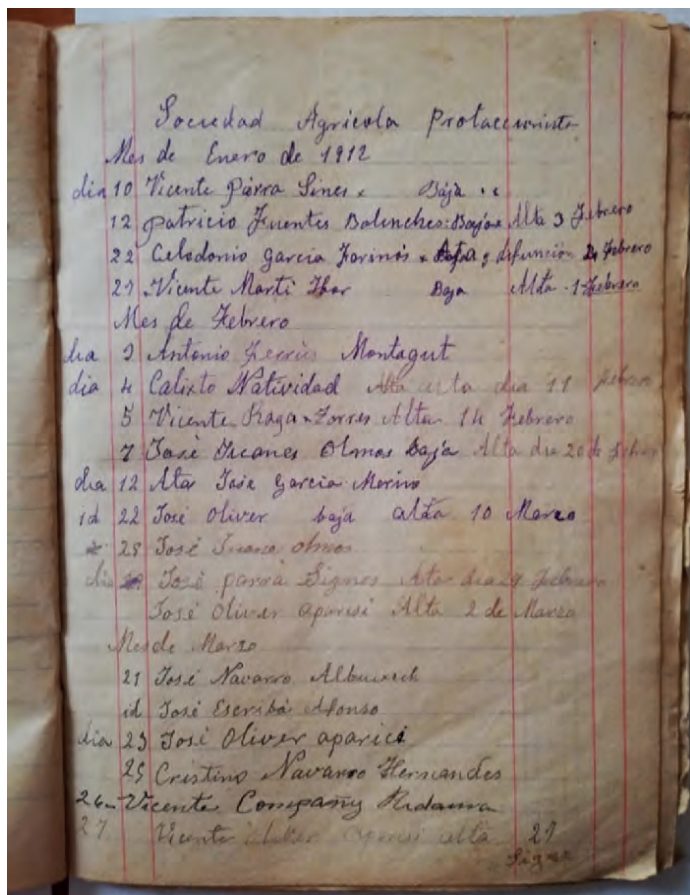 Sociedad Agricola Protaccionista
Mes de Enero de 1912
dia 10 Vicente Parra Sines Baja
12 patricio Fuentes Balenches Baja Alta 3 Febrero
22 Celodonio Garcia Farinós defunción 24 Febrero
27 Vicente Martí Ibor Baja Alta 1 Febrero
Mes de Febrero
dia 3 Antonio Ferrús Montagut
dia 4 Calixto Natividad Alta dia 11 Febrero
5 Vicente Raga Torres Alta 14 Febrero
7 José Olmos Baja Alta dia 20 de
dia 12 Alta José Garcia Merino
id 22 José Oliver baja alta 10 Marzo
28 José olmos
dia José parra Signes Alta dia 29 Febrero
José Oliver aparisi Alta 2 de Marzo
Mes de Marzo
21 José Navarro Albuixech
id José Escribá Alonso
dia 23 José Oliver aparici
25 Cristino Navarro Hernandes
26 Vicente Compañy Ridaura
27 Vicente alta 27
Sigue